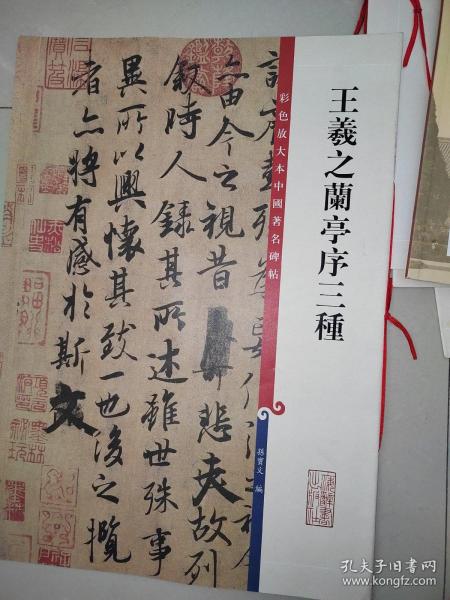 王羲之蘭亭序三種
彩色放大本中國著名碑帖
孫寶文 編
由今之視昔悲夫故列
叙時人錄其所述雖世殊事
異所以興懷其致一也後之攬
者亦將有感於斯文
上海辭書出版社
孔夫子旧书网
www.kongfz.com